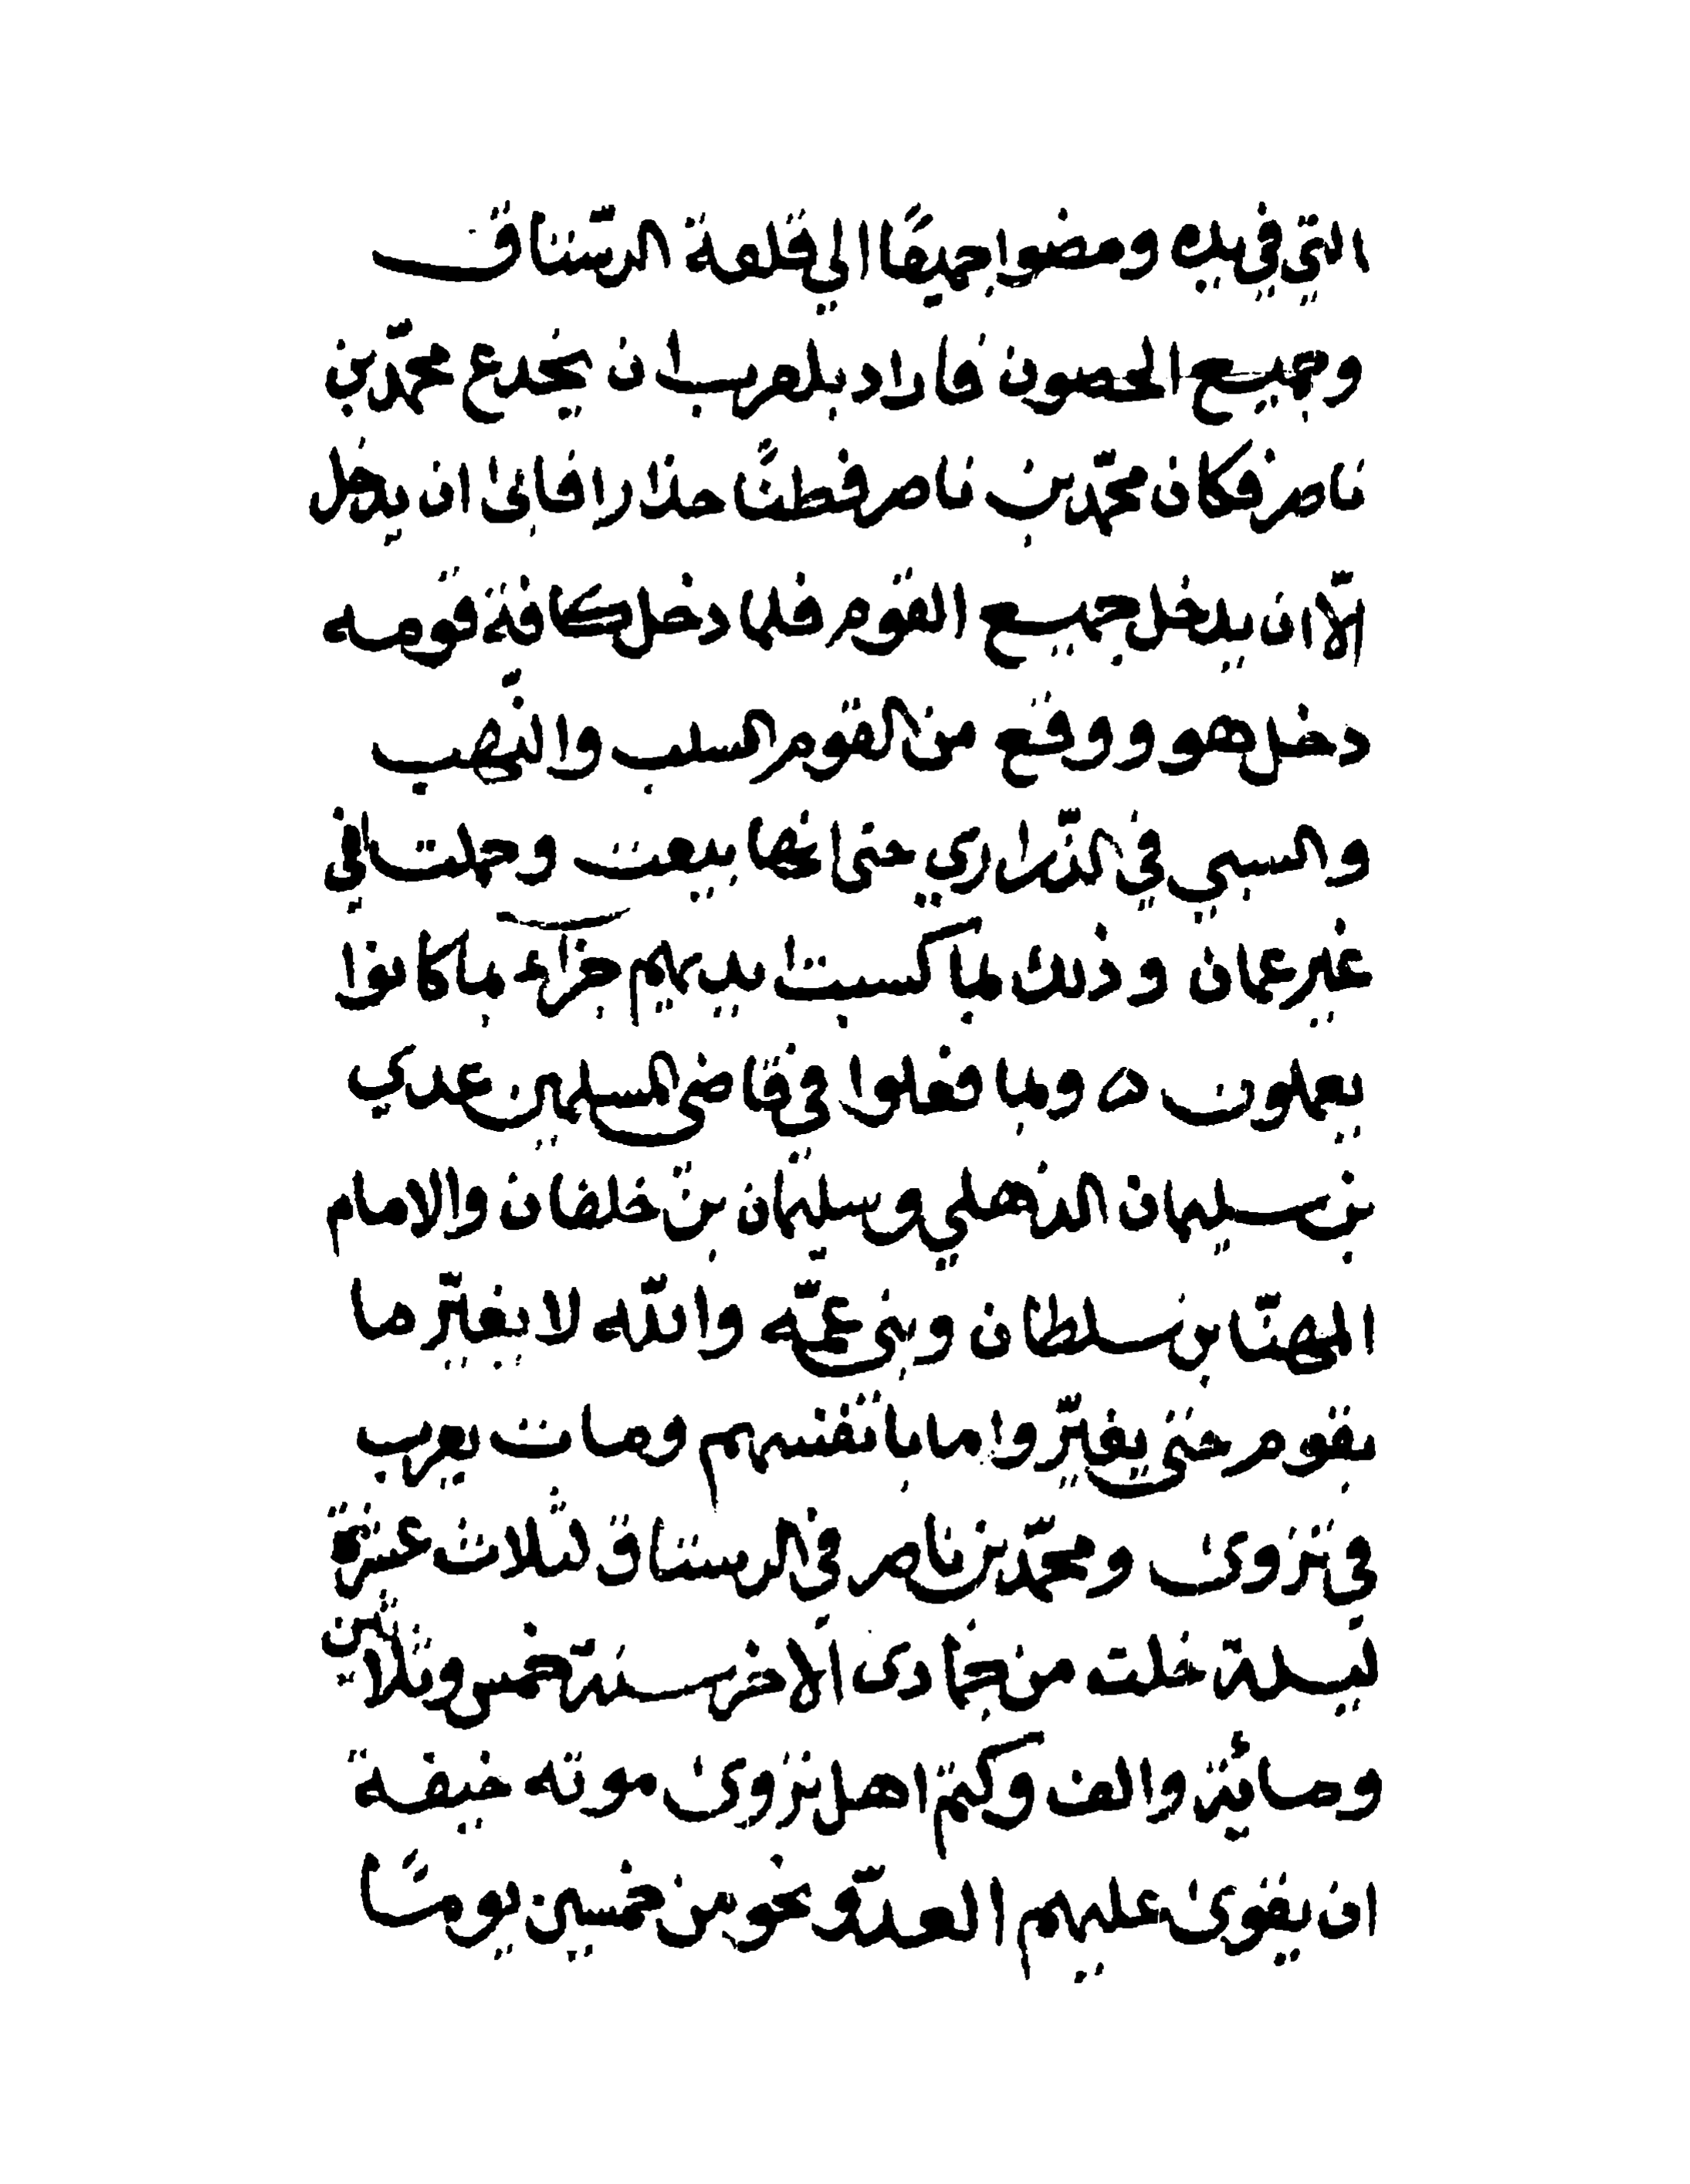 التي في يده ومضوا جميعًا الي قلعة الرسّتاق
وجميع الحصون فاراد بلعرب ان يخدع محمّد بن
ناصر فكان محمّد بن ناصر فطنًا حذارا فابىٰ ان يدخل
الّا ان يدخل جميع القوم فلما دخل كافة قومه
دخل هو ووقع من القوم السلب والنّهب
والسبي في الذّراري حتى انها بيعت وحملت الى
غير عمان وذلك بما كسبت ايديهم جزآء بما كانوا
يعملون ه وبما فعلوا في قاضي المسلمين عدي
بن سليمان الذهلي وسليمان بن خلفان والامام
المهنّا بن سلطان وبني عمّه والله لا يغيّر ما
بقوم حتى يغيّروا ما بانفسهم ومات يعرب
في نزوىٰ ومحمّد بن ناصر في الرستاق لثلاث عشرة
ليلة خلت من جمادى الاخر سنة خمس وثلاثين
ومائة والف وكتم اهل نزوىٰ موته خيفة
ان يقوىٰ عليهم العدوّ نحو من خمسين يومًا